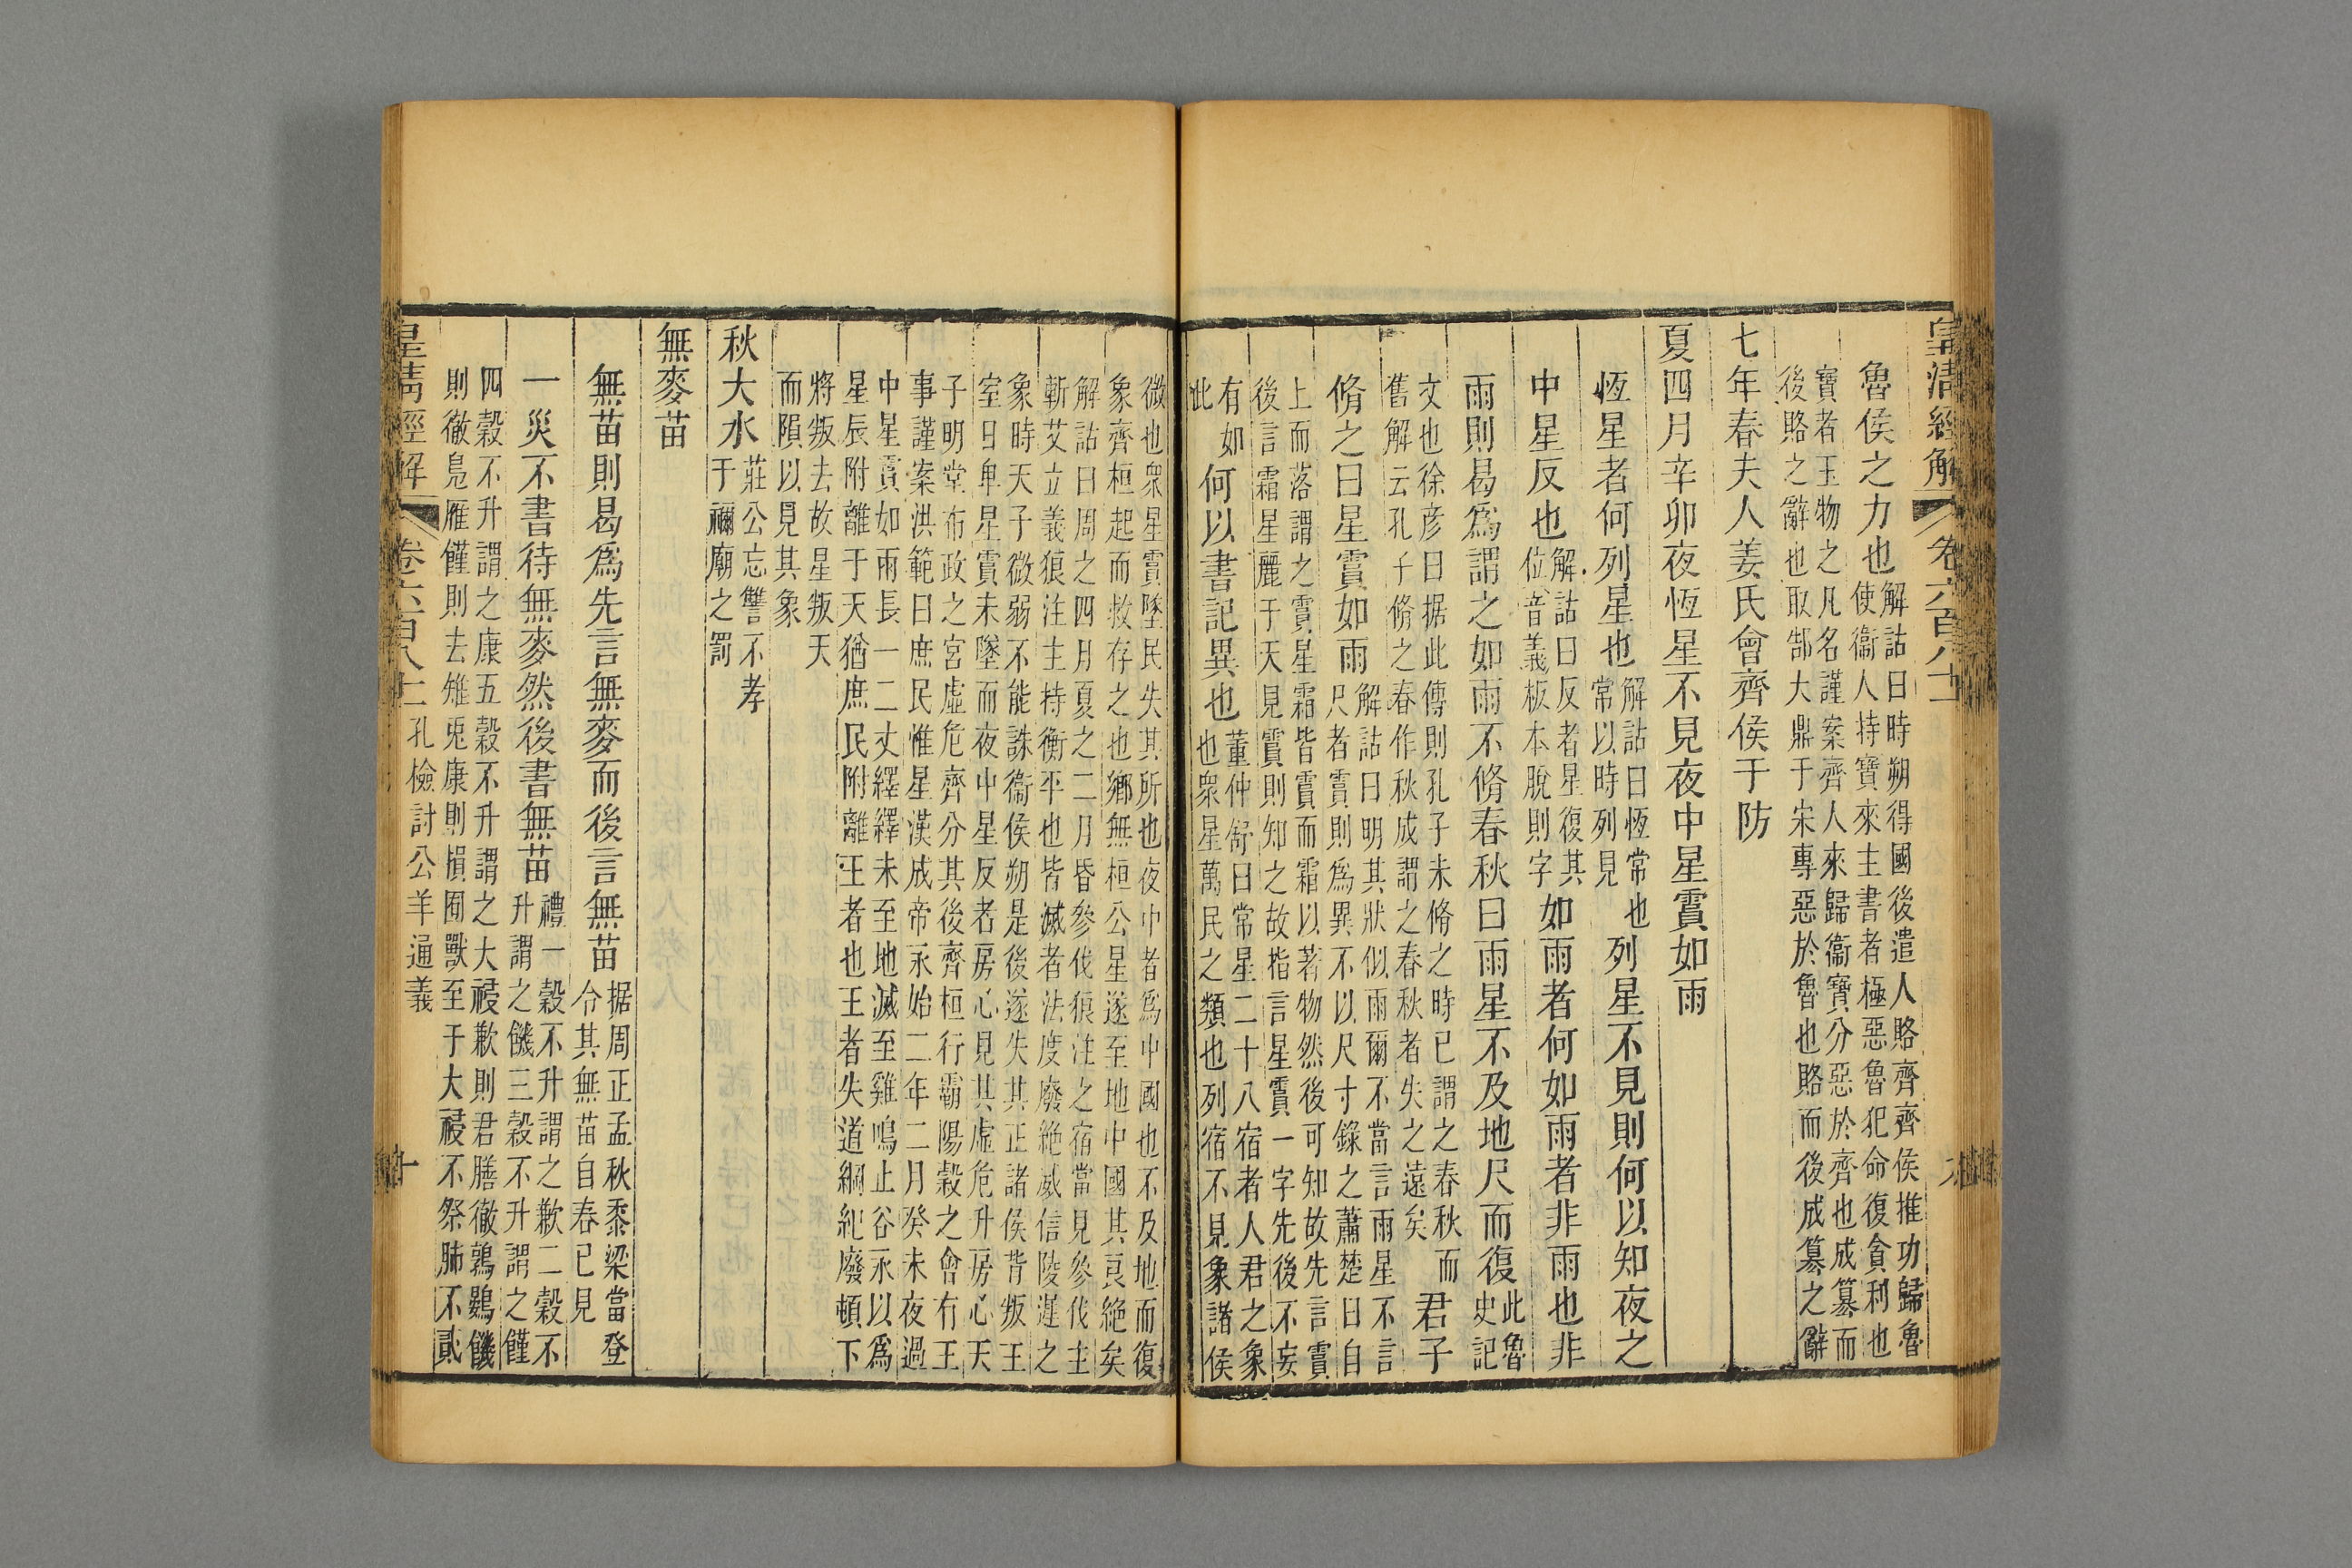 皇清經解 卷六百八十一 九
魯侯之力也解詁曰時朔得國後遣人賂齊齊侯推功歸魯使衞人持寶來主書者極惡魯犯命復貪利也
寶者玉物之凡名謹案齊人來歸衞寶分惡於齊也成篡而後賂之辭也取郜大鼎于宋專惡於魯也賂而後成篡之辭
七年春夫人姜氏會齊侯于防
夏四月辛卯夜恆星不見夜中星霣如雨
恆星者何列星也解詁曰恆常也常以時列見列星不見則何以知夜之
中星反也解詁曰反者星復其位音義板本脫則字如雨者何如雨者非雨也非
雨則曷爲謂之如雨不脩春秋曰雨星不及地尺而復此魯史記
文也徐彦曰据此傳則孔子未脩之時已謂之春秋而舊解云孔子脩之春作秋成謂之春秋者失之遠矣君子
脩之曰星霣如雨解詁曰明其狀似雨爾不當言雨星不言尺者霣則爲異不以尺寸錄之蕭楚曰自
上而落謂之霣星霜皆霣而霜以著物然後可知故先言霣後言霜星麗于天見霣則知之故指言星霣一字先後不妄
有如此何以書記異也董仲舒曰常星二十八宿者人君之象也衆星萬民之類也列宿不見象諸侯
微也衆星霣墜民失其所也夜中者爲中國也不及地而復象齊桓起而救存之也鄉無桓公星遂至地中國其良絕矣
解詁曰周之四月夏之二月昏參伐狼注之宿當見參伐主斬艾立義狼注主持衡平也皆滅者法度廢絶威信陵遲之
象時天子微弱不能誅衞侯朔是後遂失其正諸侯背叛王室日卑星霣未墜而夜中星反者房心見其虛危斗房心天
子明堂布政之宮虛危齊分其後齊桓行霸陽穀之會有王事謹案洪範曰庶民惟星漢成帝永始二年二月癸未夜過
中星霣如雨長一二丈繹繹未至地滅至雞鳴止谷永以爲星辰附離于天猶庶民附離王者也王者失道綱紀廢頓下
將叛去故星叛天而隕以見其象
秋大水莊公忘讐不孝于禰廟之罰
無麥苗
無苗則曷爲先言無麥而後言無苗据周正孟秋黍梁當登今其無苗自春已見
一災不書待無麥然後書無苗禮一穀不升謂之歉二穀不升謂之饑三穀不升謂之饉
四穀不升謂之康五穀不升謂之大祲歉則君膳徹鶉鷃饑則徹鳧雁饉則去雉兎康則損囿獸至于大祲不祭肺不貳
皇清經解 卷六百八十一 孔檢討公羊通義 十